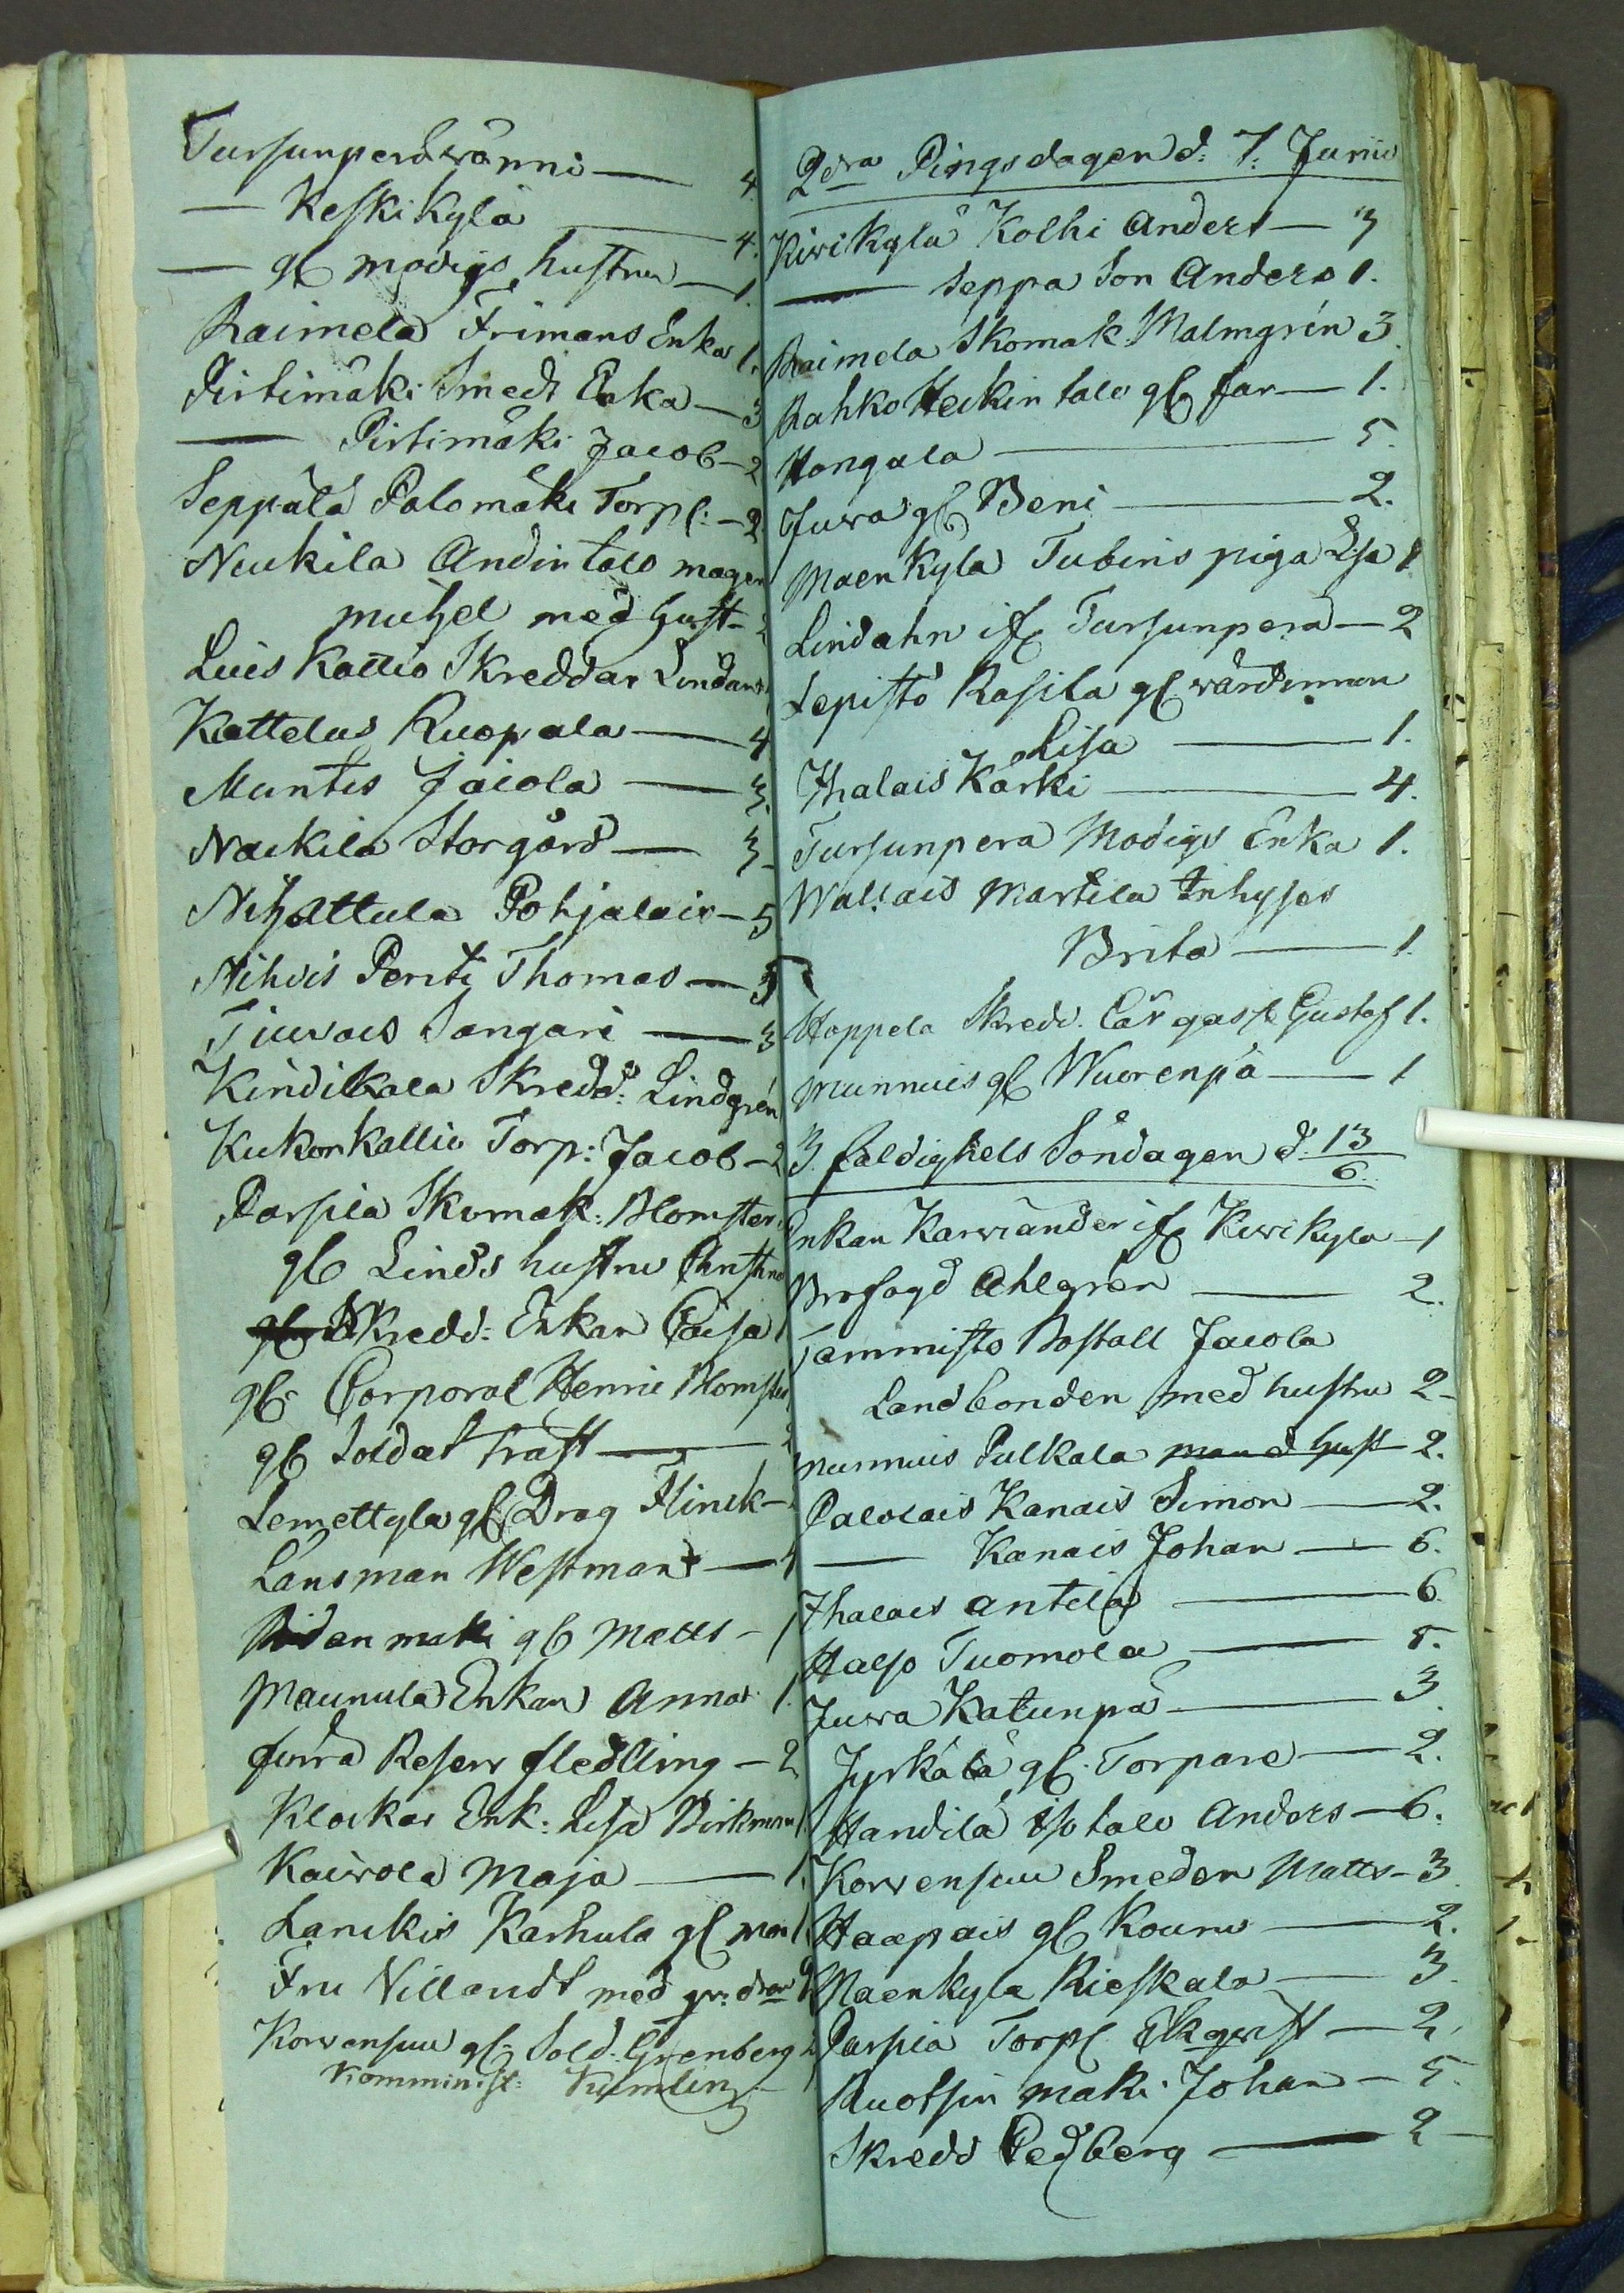 Tursunperä Wänni — 4.
— Keskikylä — 4.
— gl modigs hustru — 1.
Raimela Frimans Enka 1.
Pirtimäki Smeds Enka — 3
— Pirtimäki Jacob — 2
Seppälä Palomäki Torp: — 2
Neukila Andin talo magen
michel med hust — 2
Luis Kallio Skreddar Lindan
Kattelus Ruopala — 4
Muntis Jacola — 3.
Naukila Storgård — 3
Nihattula Pohjalais — 5
Nihvis Pentti Thomas — 3
Tiuvais Sangari — 3
Kindikala Skredd: Lindgrén
Kukonkallio Torp: Jacob — 2
Parsila Skomak: Blomster
gl Linds hustru Christina
Skredd: Enkan Caisa 1
gl: Corporal Henric Blomster
gl Soldat Trast — 2
Lemettylä gl Drag Flinck —
Länsman Westman — 4
Ridanmäki gl Matts — 1
Maunula Enkan Anna 1.
förra Reserv fledling — 2
Klockar Enk: Lisa Birkman 1
Kairola Maja — 1.
Lanckis Karhula gl mor 1.
Fru Nillandt med
Korvensuu gl: Sold. Grenberg 2
Komminist: Kumlin —
2dra Pingsdagen d: 7: Junii
Kivikylä Kolhi Anders — 3
— Seppä Son Anders 1.
Raimela Skomak Malmgrén 3.
Rahko Heikin talo gl far — 1.
Hongala — 5.
Juva gl Beni — 2.
Maenkylä Tubins piga Lisa 1
Lindahn ifr Tursunperä — 2
Lepistö Rasila gl värdinnan
Lisa — 1.
Ihalais Kärki — 4.
Tursunpera Modigs Enka 1.
Wallais Martila Inhyses
Brita — 1.
Hoppela Skredd. Gustaf 1.
Munnuis gl Wuorenpä — 1
3. faldighets Söndagen d: 13/6
Enkan Karviander ifr Kivikyla — 1
Brofogd Ahlgren — 2.
Tammisto Boställ Jacola
Landbonden med hustru 2 —
Munnuis Pulkala man d hust 2.
Palolais Kanais Simon — 2.
— Kanais Johan — 6.
Ihalais Antila — 6.
Halso Tuomola — 5.
Juva Katunpä — 3.
Jyrkälä gl. Torpare — 2.
Handila Iso talo Anders — 6.
Korvensuu Smeden Matts — 3
Haapais gl Kouru — 2.
Maenkyla Rieskala — 3.
Parsila Torp Ekqvist — 2.
Ruotsin maki Johan — 5.
Skredd Pedberg — 2 —